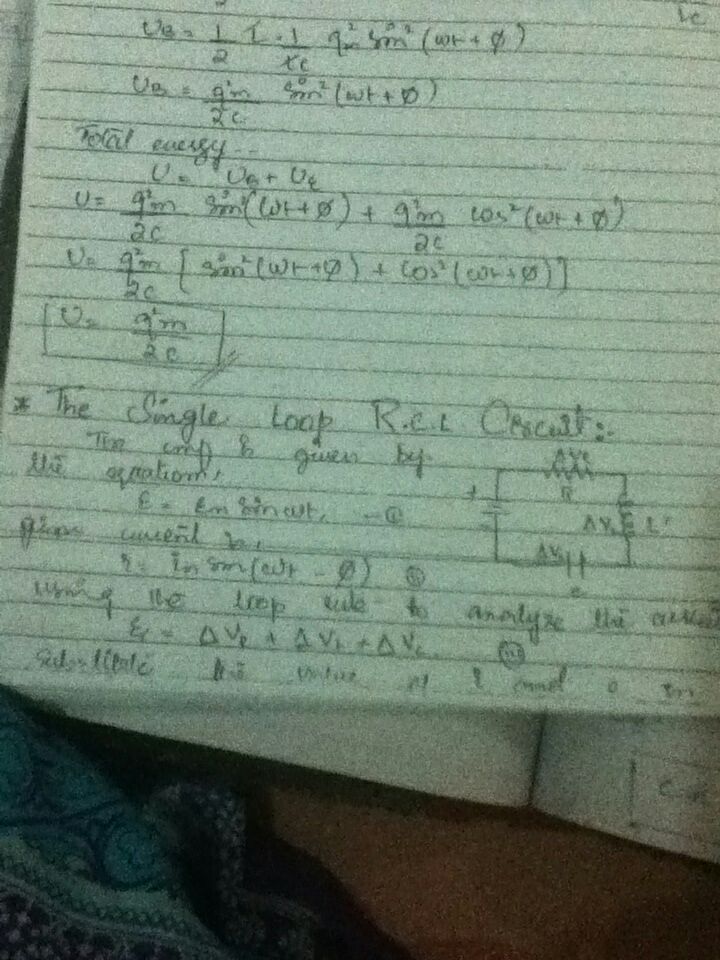 U_B = 1/2 L · 1/Lc q²m sin²(ωt + ϕ)
U_B = q²m/2c sin²(ωt + ϕ)
Total energy..
U = U_B + U_E
U = q²m/2c sin²(ωt + ϕ) + q²m/2c cos²(ωt + ϕ)
U = q²m/2c [sin²(ωt + ϕ) + cos²(ωt + ϕ)]
U = q²m/2c
* The Single Loop R.C.L Circuit:-
The emf is given by
the equation,
ε = εm sin ωt,
current
i = im sin(ωt - ϕ)
using the loop rule to analyze the
ε = ΔV_R + ΔV_L + ΔV_C
substitute the value of
R
L
C